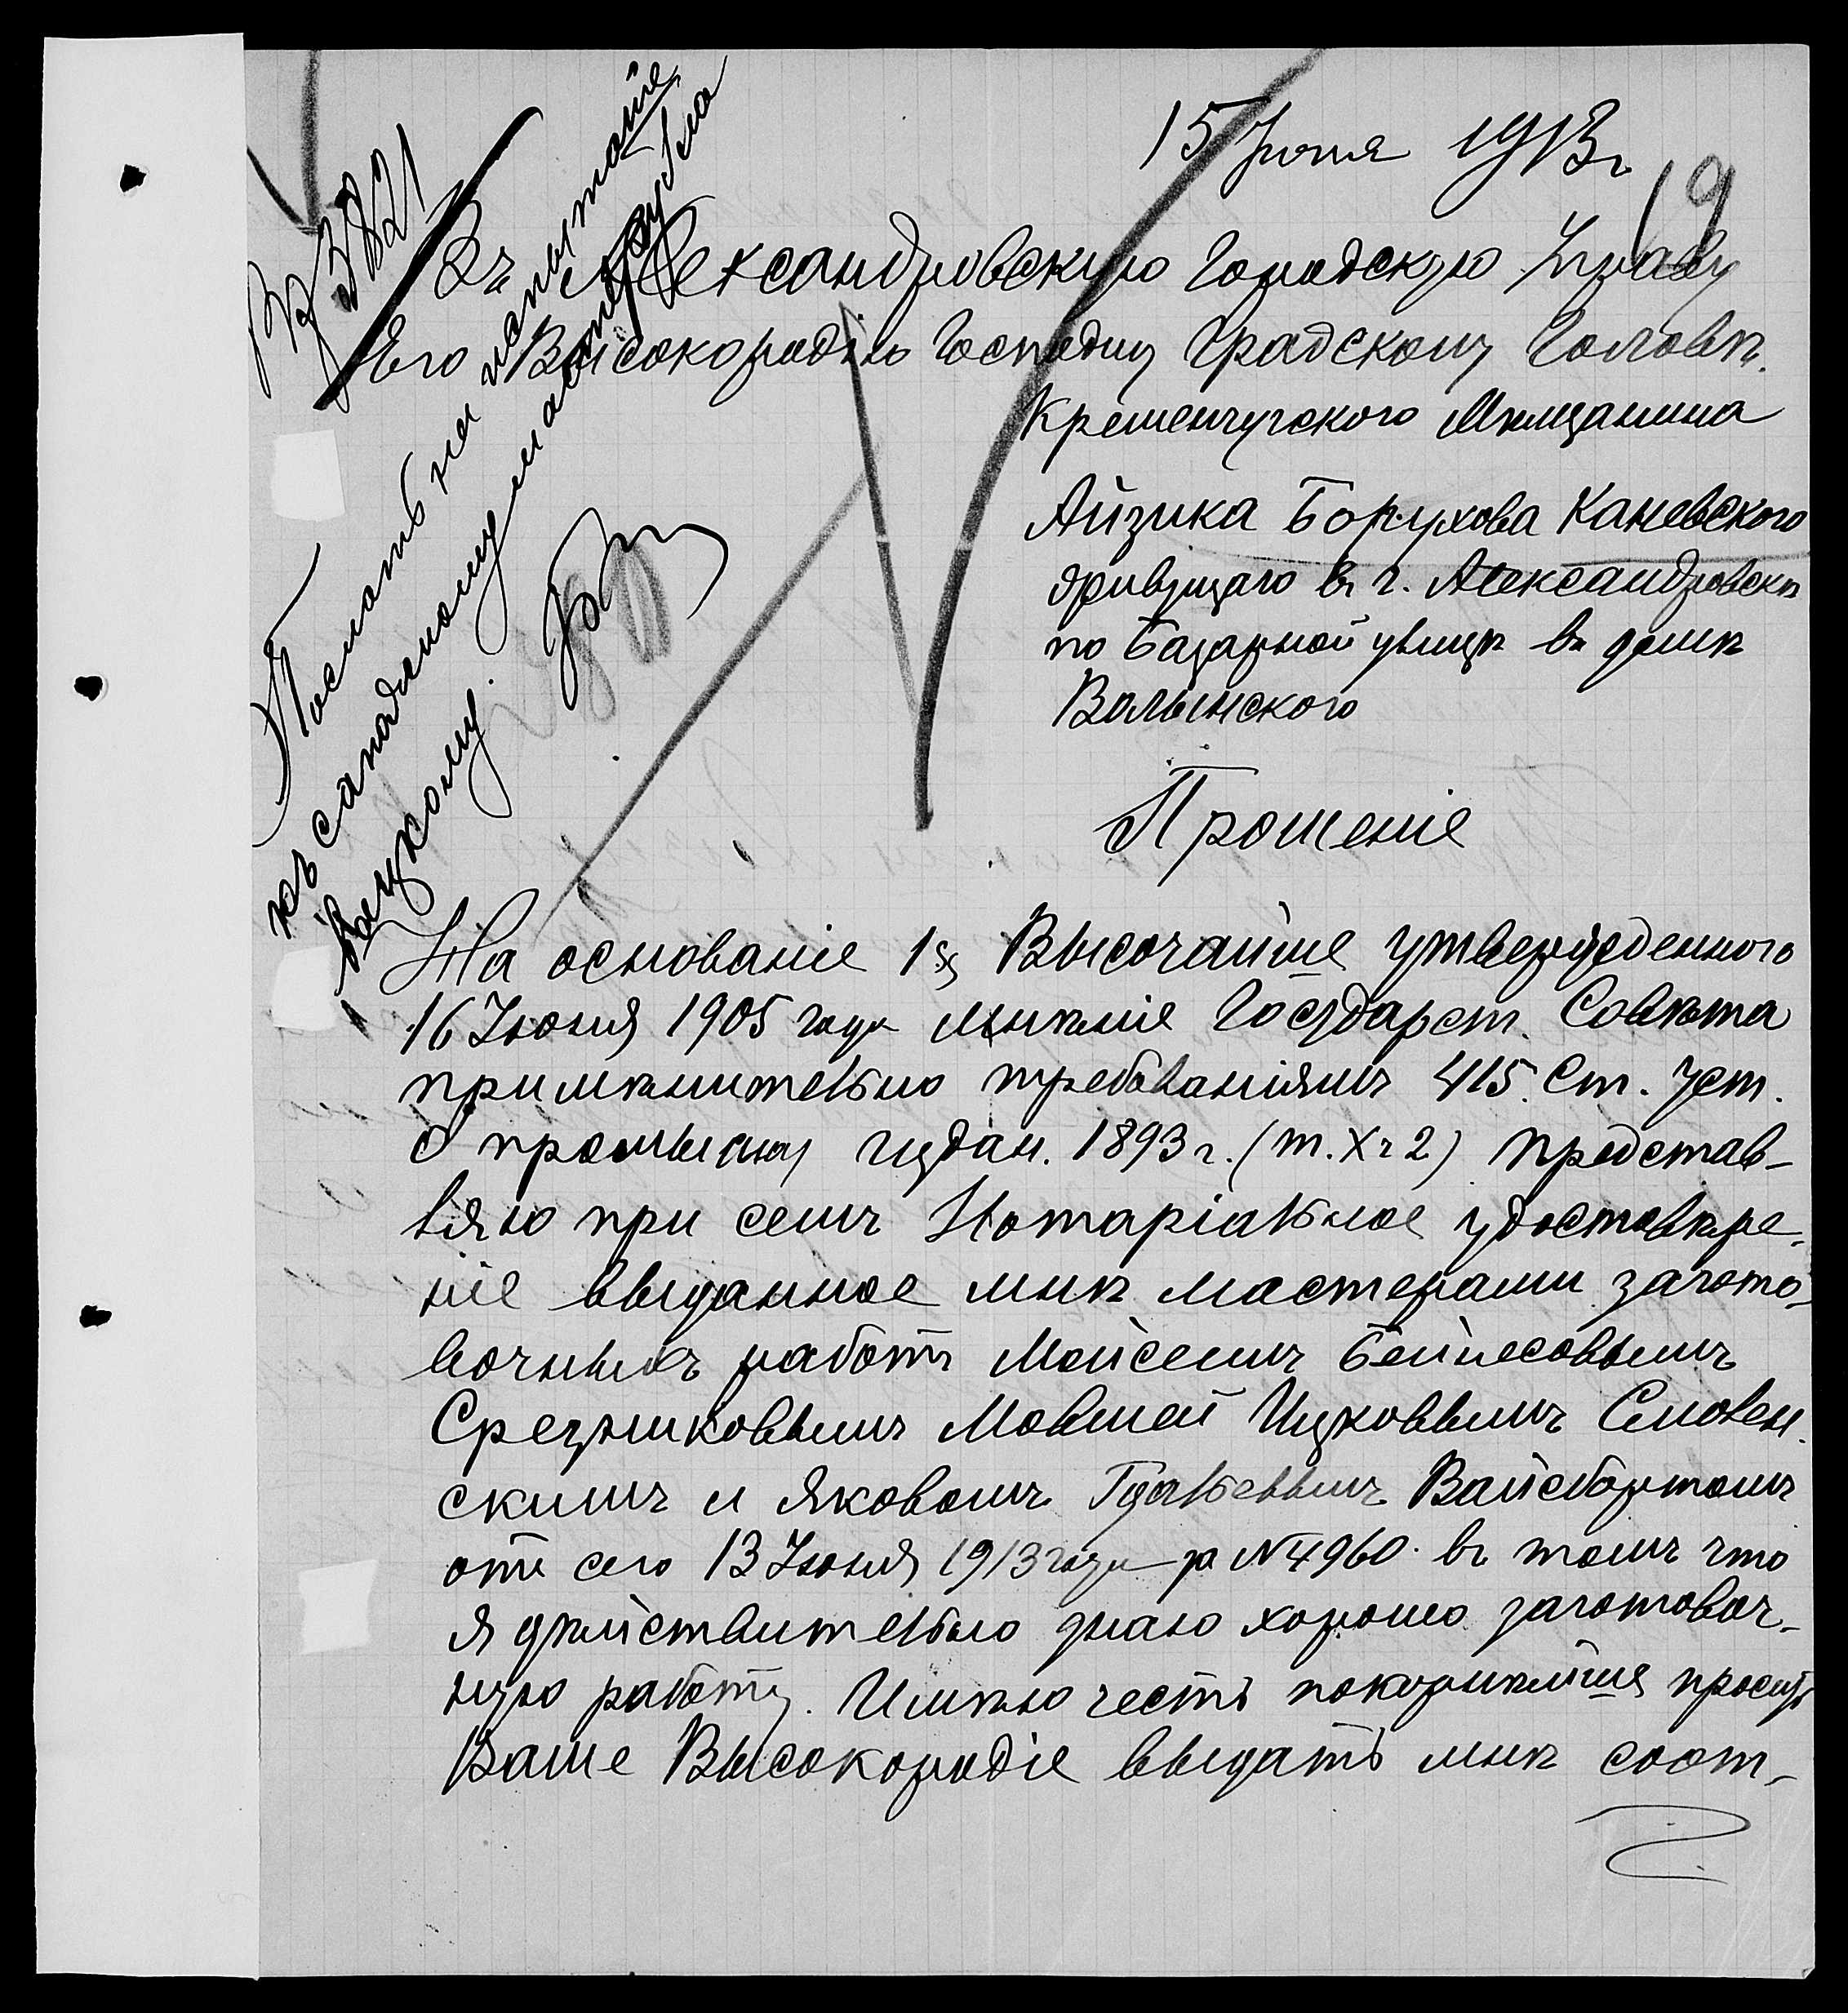 15 Июня 1913 г
19
Вх 3821
Въ Александровскую Городскую Управу
Его Высокородію Господину Градскому Головѣ.
Кременчугского Мѣщанина
Айзика Борухова Каневского
живущаго въ г. Александровскѣ
по Базарной улицѣ въ домѣ
Волынского
Послать на испытаніе
къ сапожному мастеру
Прошеніе
На основаніе 1 § Высочайше утвержденного
16 Июня 1905 года мнѣніе Государст. Совѣта
примѣнительно требованіямъ 415. Ст. Уст.
О промышл издан. 1893 г. (т. X ч 2) представ-
вляю при семъ Нотаріальное удостовѣре-
ніе выданное мнѣ мастерами загото-
вочныхъ работъ Мойсеемъ Бейнесовымъ
Срезниковымъ Мовшей Ицковымъ Словен-
скимъ и Яковомъ Гдальевымъ Вайсбортомъ
отъ сего 13 Июня 1913 года за № 4960. въ томъ что
я дѣйствительно знаю хорошо заготовоч-
ную работу. Имѣю честь покорнѣйше просить
Ваше Высокородіе выдать мнѣ соот-